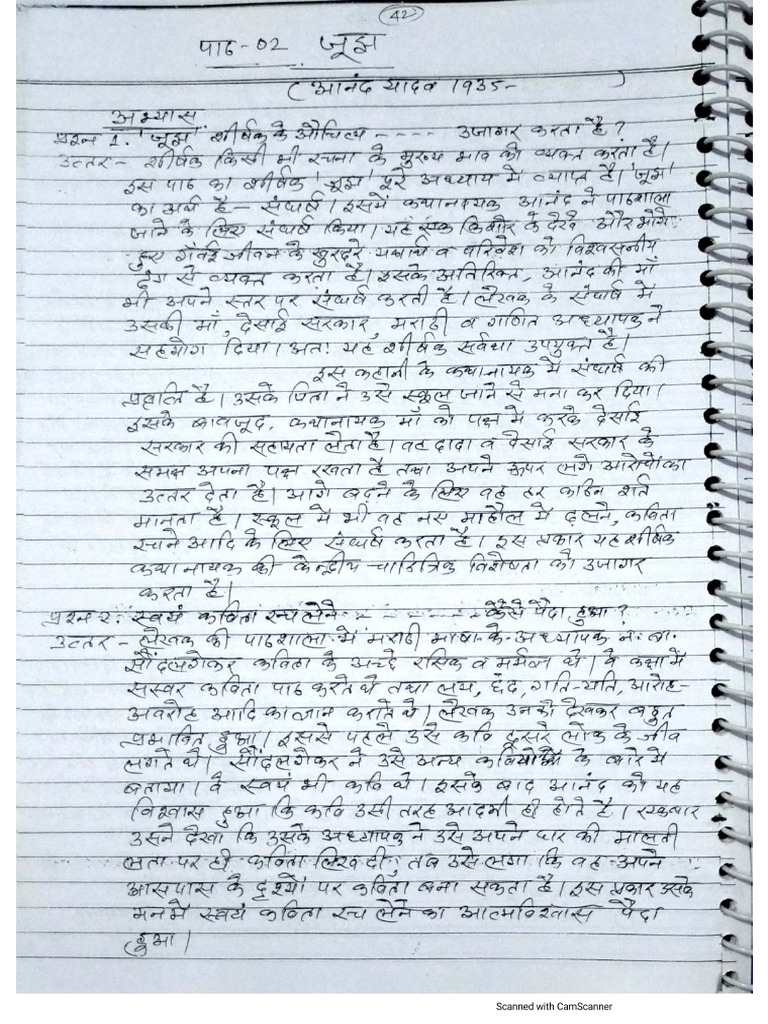 42
पाठ-02 जूझ
(आनंद यादव 1935- )
अभ्यास
प्रश्न 1. 'जूझ' शीर्षक के औचित्य ---- उजागर करता है?
उत्तर- शीर्षक किसी भी रचना के मुख्य भाव को व्यक्त करता है।
इस पाठ का शीर्षक 'जूझ' पूरे अध्याय में व्याप्त है। 'जूझ'
का अर्थ है - संघर्ष। इसमें कथानायक आनंद ने पाठशाला
जाने के लिए संघर्ष किया। यह एक किशोर के देखे और भोगे
हुए गँवई जीवन के खुरदरे यथार्थ व परिवेश को विश्वसनीय
ढंग से व्यक्त करता है। इसके अतिरिक्त, आनंद की माँ
भी अपने स्तर पर संघर्ष करती है। लेखक के संघर्ष में
उसकी माँ, देसाई सरकार, मराठी व गणित अध्यापक ने
सहयोग दिया। अतः यह शीर्षक सर्वथा उपयुक्त है।
इस कहानी के कथानायक में संघर्ष की
प्रवृत्ति है। उसके पिता ने उसे स्कूल जाने से मना कर दिया।
इसके बावजूद, कथानायक माँ को पक्ष में करके देसाई
सरकार की सहायता लेता है। वह दादा व देसाई सरकार के
समक्ष अपना पक्ष रखता है तथा अपने ऊपर लगे आरोपों का
उत्तर देता है। आगे बढ़ने के लिए वह हर कठिन शर्त
मानता है। स्कूल में भी वह नए माहौल में ढलने, कविता
रचने आदि के लिए संघर्ष करता है। इस प्रकार यह शीर्षक
कथानायक की केन्द्रीय चारित्रिक विशेषता को उजागर
करता है।
प्रश्न 2. स्वयं कविता रच लेने ------- कैसे पैदा हुआ?
उत्तर- लेखक की पाठशाला में मराठी भाषा के अध्यापक न. बा.
सौंदलगेकर कविता के अच्छे रसिक व मर्मज्ञ थे। वे कक्षा में
सस्वर कविता पाठ करते थे तथा लय, छंद, गति-यति, आरोह-
अवरोह आदि का ज्ञान कराते थे। लेखक उनको देखकर बहुत
प्रभावित हुआ। इससे पहले उसे कवि दूसरे लोक के जीव
लगते थे। सौंदलगेकर ने उसे अन्य कवियों के बारे में
बताया। वे स्वयं भी कवि थे। इसके बाद आनंद को यह
विश्वास हुआ कि कवि उसी तरह आदमी ही होते हैं। एकबार
उसने देखा कि उसके अध्यापक ने उसे अपने घर की मालती
लता पर ही कविता लिख दी, तब उसे लगा कि वह अपने
आसपास के दृश्यों पर कविता बना सकता है। इस प्रकार उसके
मन में स्वयं कविता रच लेने का आत्मविश्वास पैदा
हुआ।
Scanned with CamScanner